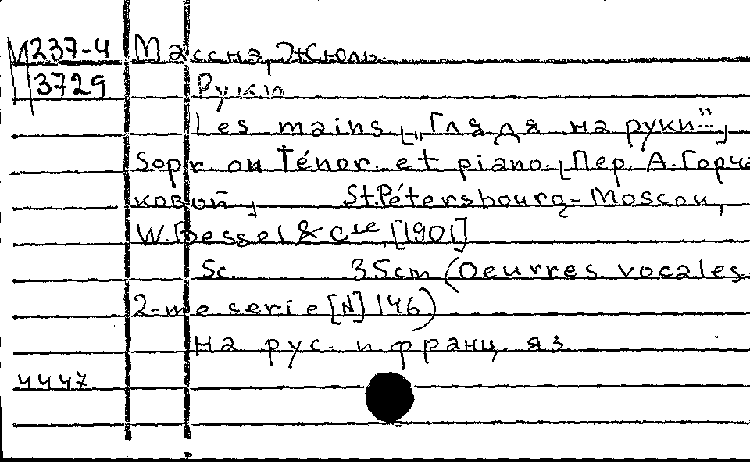 М237-4 Массна, Жюль
3729 Руки
Les mains [„Глядя на руки"]
Sopr. ou Ténor et piano. [Пер. А. Горча
ковой] St.Pétersbourg-Moscou,
W. Bessel & Cie, [1901]
5с. 35cm (Oeuvres vocales
2-me serie [N] 146)
На рус. и франц яз
4447